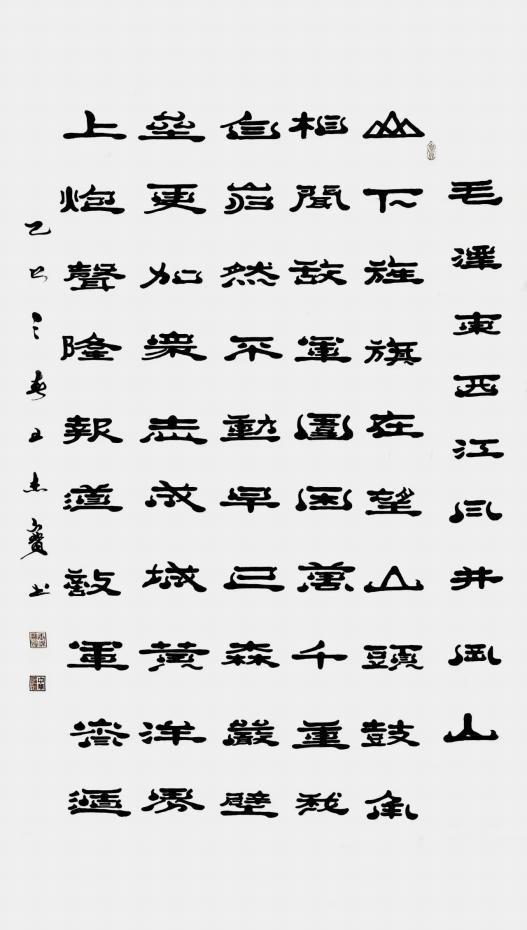 毛澤東西江月井岡山
山下旌旗在望山頭鼓角
相聞敵軍圍困萬千重我
自岿然不動早已森嚴壁
壘更加衆志成城黃洋界
上炮聲隆報道敵軍宵遁
乙巳之春王书